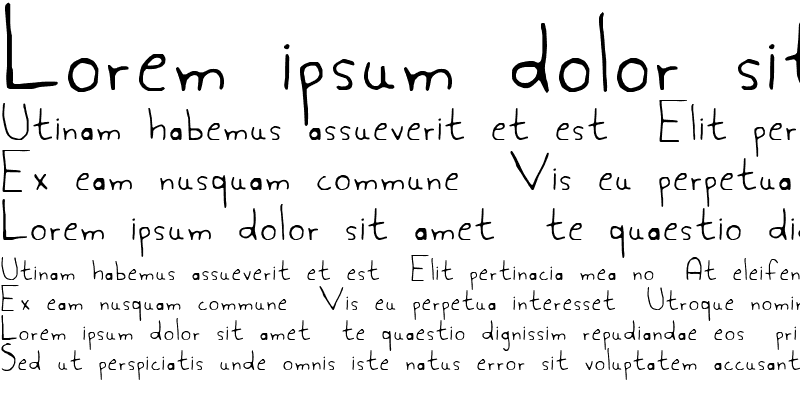 Lorem ipsum dolor sit
Utinam habemus assueverit et est Elit per
Ex eam nusquam commune Vis eu perpetua
Lorem ipsum dolor sit amet te quaestio di
Utinam habemus assueverit et est Elit pertinacia mea no At eleifen
Ex eam nusquam commune Vis eu perpetua interesset Utroque nomin
Lorem ipsum dolor sit amet te quaestio dignissim repudiandae eos pri
Sed ut perspiciatis unde omnis iste natus error sit voluptatem accusant